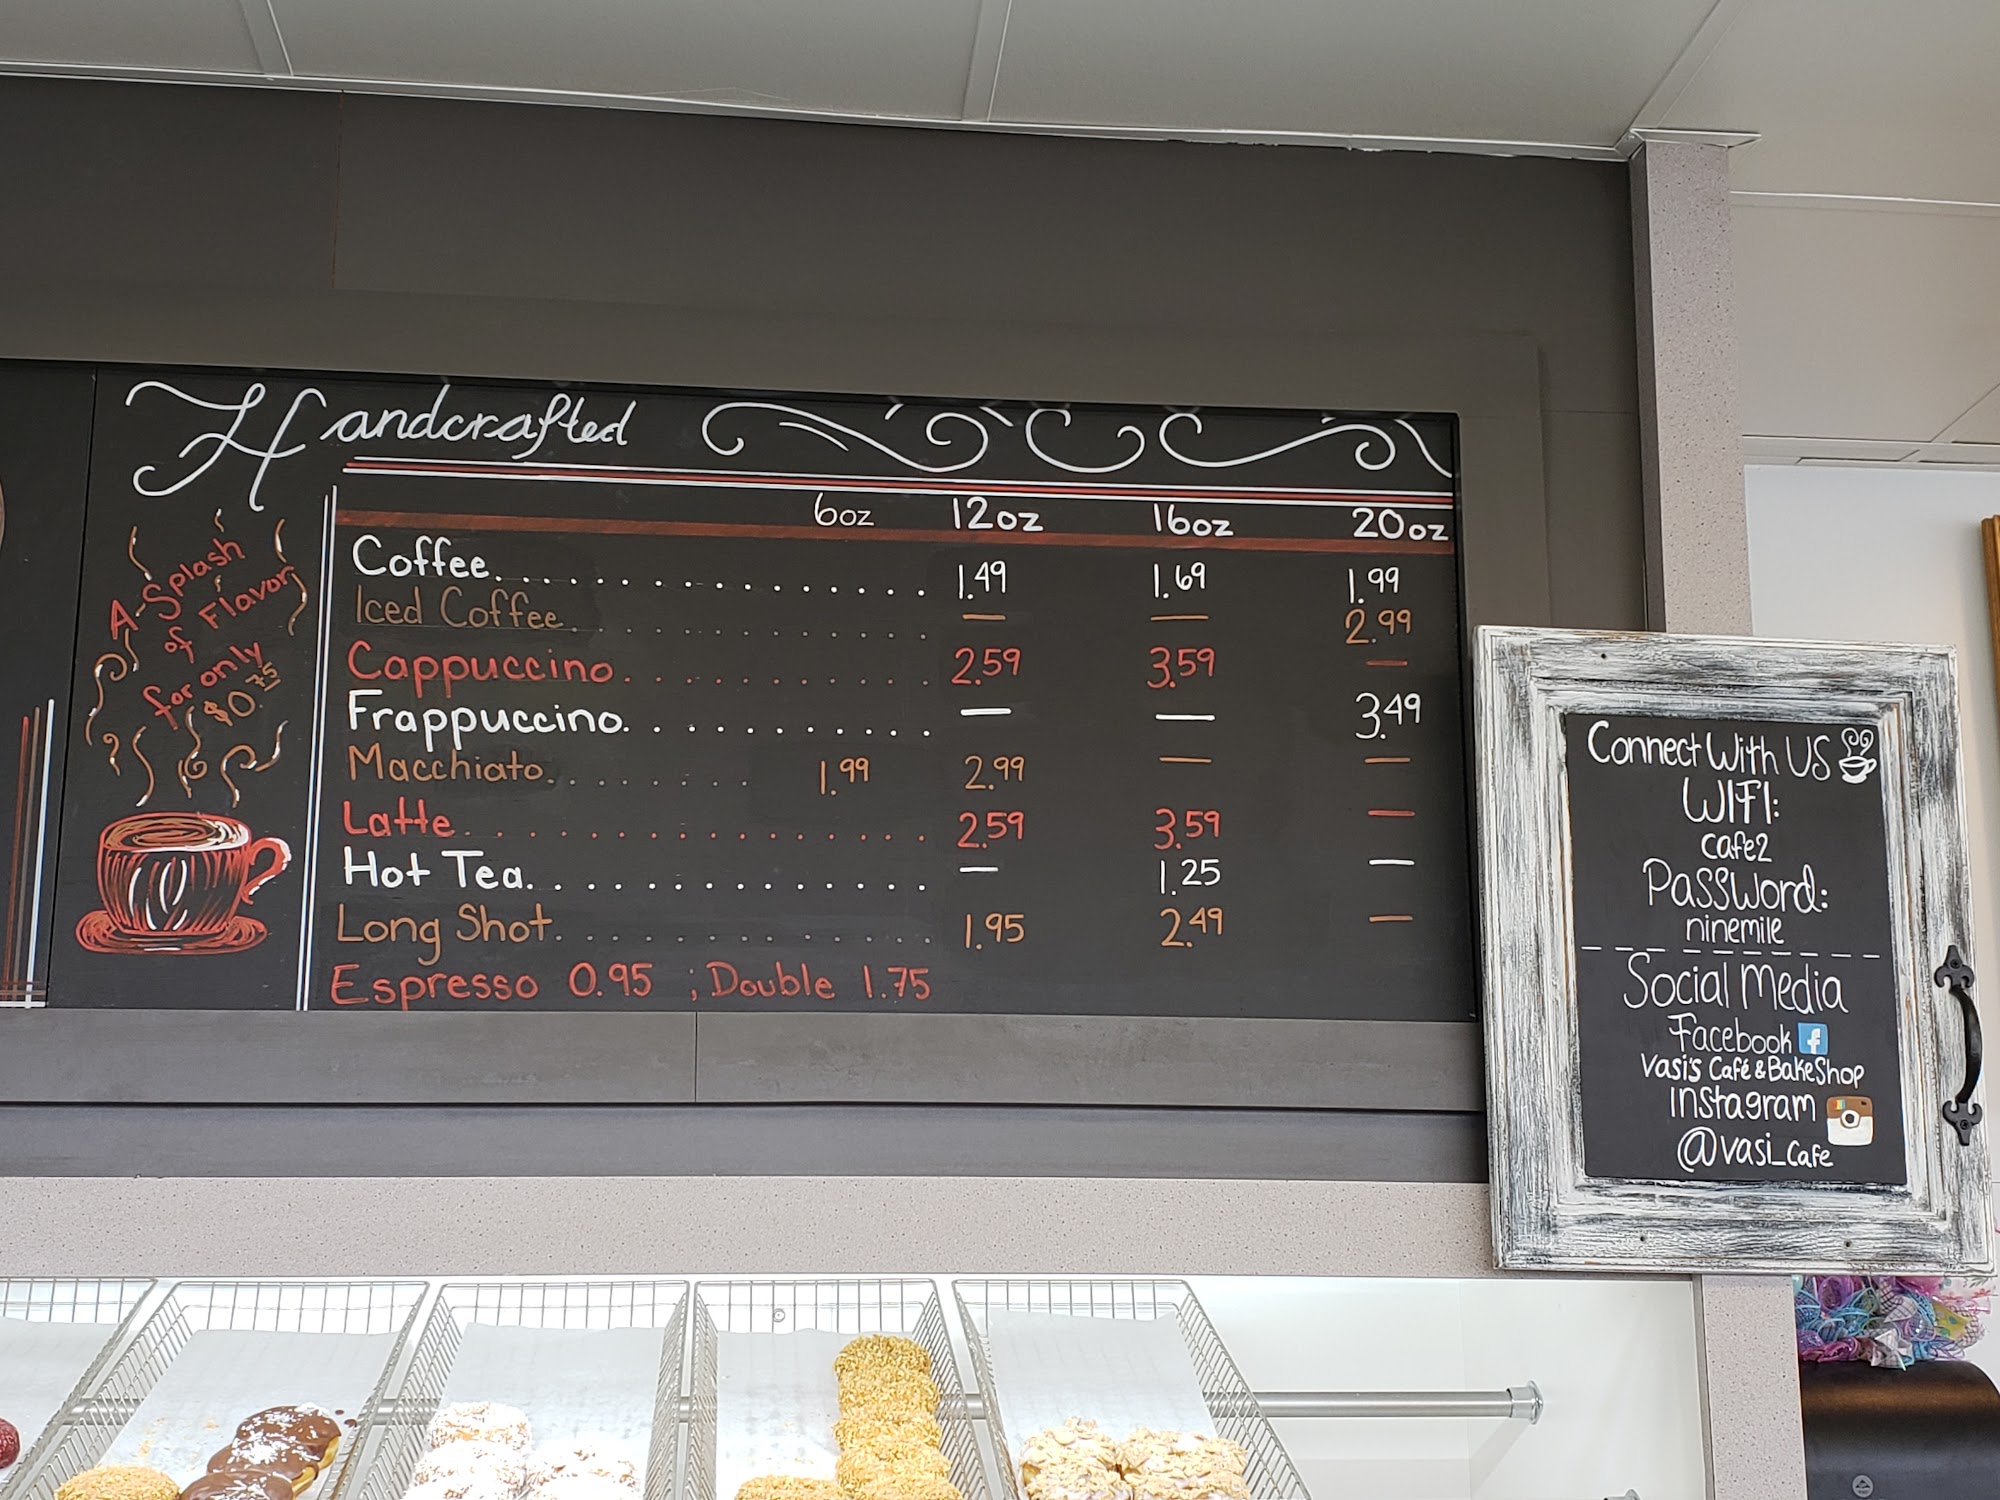 Handcrafted
A Splash
of Flavor
for only
$0.75
6oz 12oz 16oz 20oz
Coffee................. 1.49 1.69 1.99
Iced Coffee............. — — 2.99
Cappuccino............ 2.59 3.59 —
Frappuccino........... — — 3.49
Macchiato........ 1.99 2.99 — —
Latte.................. 2.59 3.59 —
Hot Tea............... — 1.25 —
Long Shot.............. 1.95 2.49 —
Espresso 0.95 ; Double 1.75
Connect With US
WIFI:
cafe2
Password:
ninemile
Social Media
Facebook f
Vasi's Café & BakeShop
Instagram
@vasi_cafe